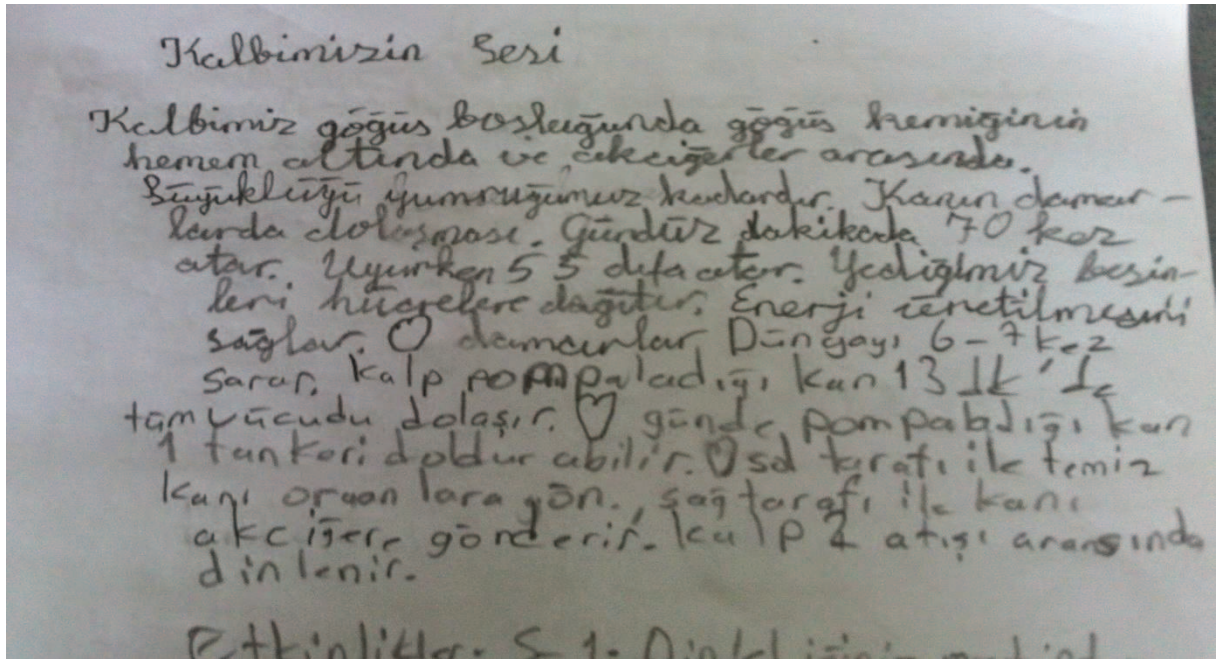 Kalbimizin Sesi
Kalbimiz göğüs boşluğunda göğüs kemiğinin
hemem altında ve akciğerler arasında.
Büyüklüğü yumruğumuz kadardır. Kanın damar-
larda dolaşması. Gündüz dakikada 70 kez
atar. Uyurken 55 defa atar. Yediğimiz besin-
leri hücrelere dağıtır. Enerji üretilmesini
sağlar. ♡ damarlar Dünyayı 6-7 kez
sarar. Kalp pompaladığı kan 13 dk'da
tüm vücudu dolaşır. ♡ günde pompaladığı kan
1 tankeri doldurabilir. ♡ sol tarafı ile temiz
kanı organlara gön., sağ tarafı ile kanı
akciğere gönderir. Kalp 2 atışı arasında
dinlenir.
Etkinlikler. S 1.